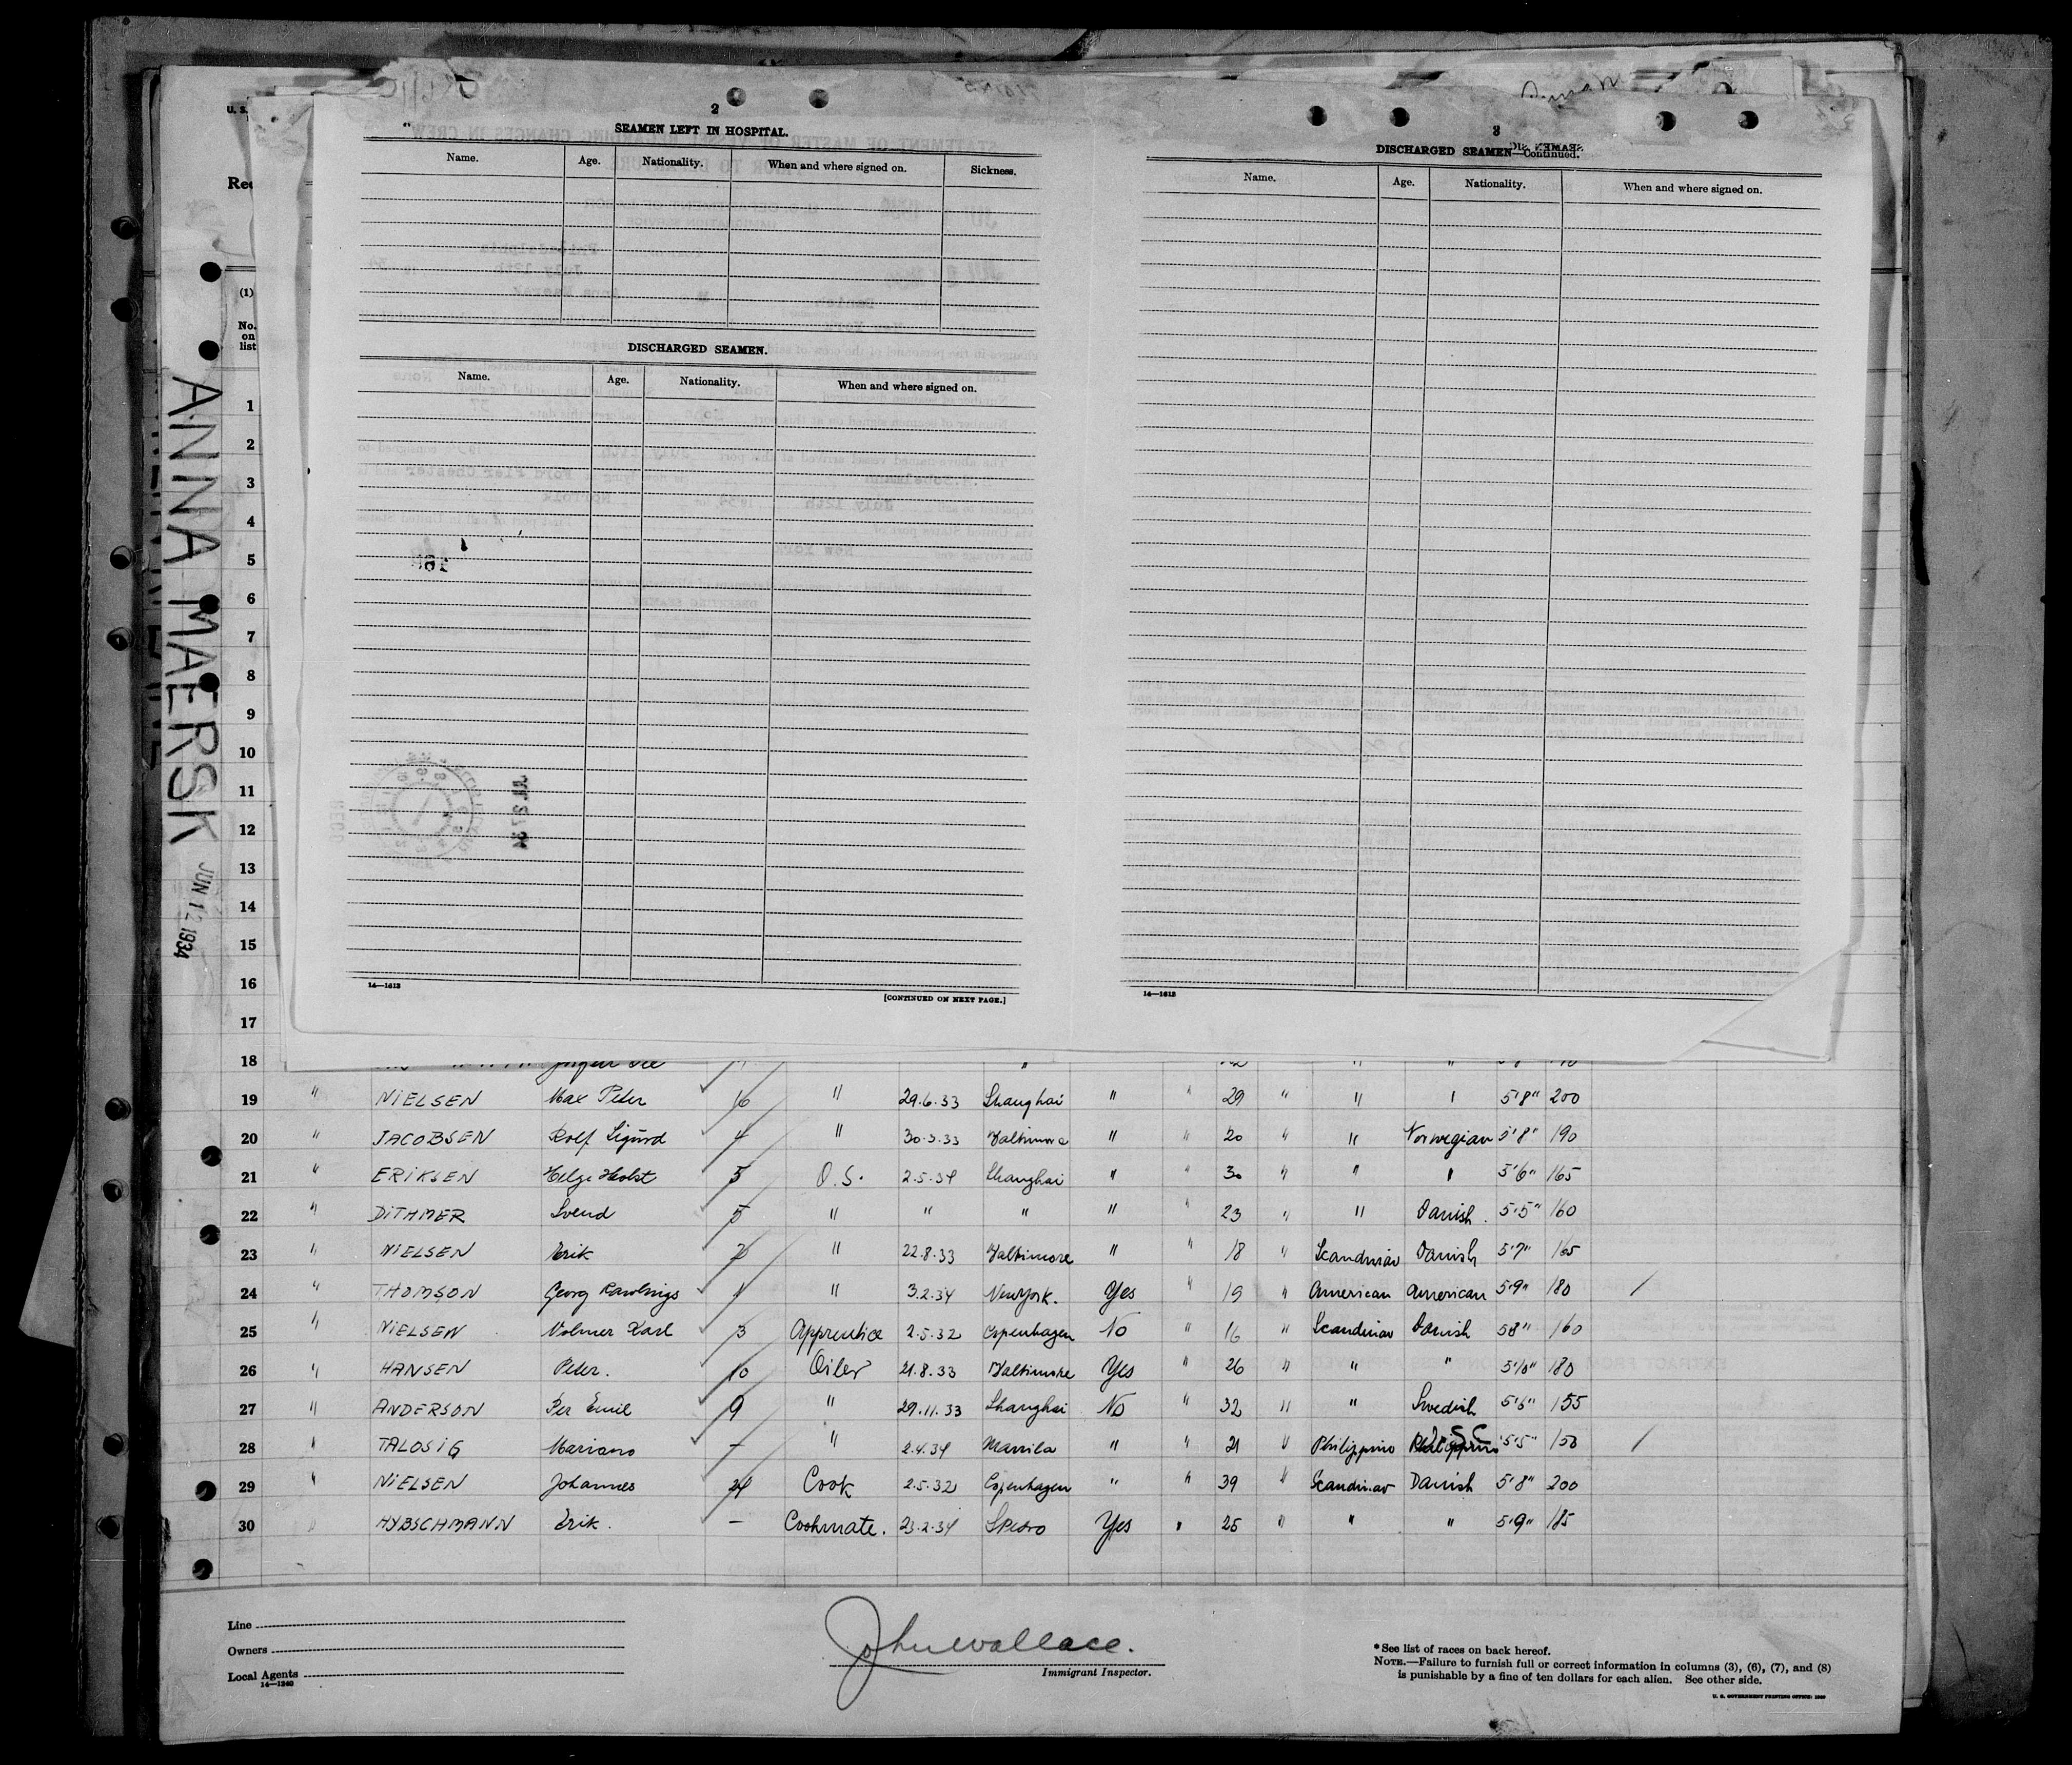 2
SEAMEN LEFT IN HOSPITAL.
Name. Age. Nationality. When and where signed on. Sickness.
DISCHARGED SEAMEN.
Name. Age. Nationality. When and where signed on.
14—1613
[CONTINUED ON NEXT PAGE.]
3
DISCHARGED SEAMEN—Continued.
Name. Age. Nationality. When and where signed on.
14—1613
U. S.
(1)
No.
on
list
ANNA MAERSK
JUN 12 1934
1
2
3
4
5
6
7
8
9
10
11
12
13
14
15
16
17
18
19 " NIELSEN Max Peter 16 " 29.6.33 Shanghai " " 29 " " " 5'8" 200
20 " JACOBSEN Rolf Sigurd 4 " 30.3.33 Baltimore " " 20 " " Norwegian 5'8" 190
21 " ERIKSEN Helge Holst 5 O.S. 2.5.34 Shanghai " " 30 " " " 5'6" 165
22 " DITHMER Svend 5 " " " " " 23 " " Danish 5'5" 160
23 " NIELSEN Erik 2 " 22.8.33 Baltimore " " 18 " Scandinav Danish 5'7" 165
24 " THOMSON Georg Rawlings " 3.2.34 New York. Yes " 19 " American American 5'9" 180 /
25 " NIELSEN Volmer Karl 3 Apprentice 2.5.32 Copenhagen No " 16 " Scandinav Danish 5'8" 160
26 " HANSEN Peter. 10 Oiler 21.8.33 Baltimore Yes " 26 " " " 5'10" 180
27 " ANDERSON Per Emil 9 " 29.11.33 Shanghai No " 32 " " Swedish 5'6" 155
28 " TALOSIG Mariano — " 2.4.34 Manila " " 21 " Philippino 5'5" 150 /
29 " NIELSEN Johannes 24 Cook 2.5.32 Copenhagen " " 39 " Scandinav Danish 5'8" 200
30 " HYBSCHMANN Erik. — Cookmate. 23.2.34 S Pedro Yes " 25 " " " 5'9" 185
Line
Owners
Local Agents
14—1240
John Wallace.
Immigrant Inspector.
*See list of races on back hereof.
NOTE.—Failure to furnish full or correct information in columns (3), (6), (7), and (8)
is punishable by a fine of ten dollars for each alien. See other side.
U. S. GOVERNMENT PRINTING OFFICE: